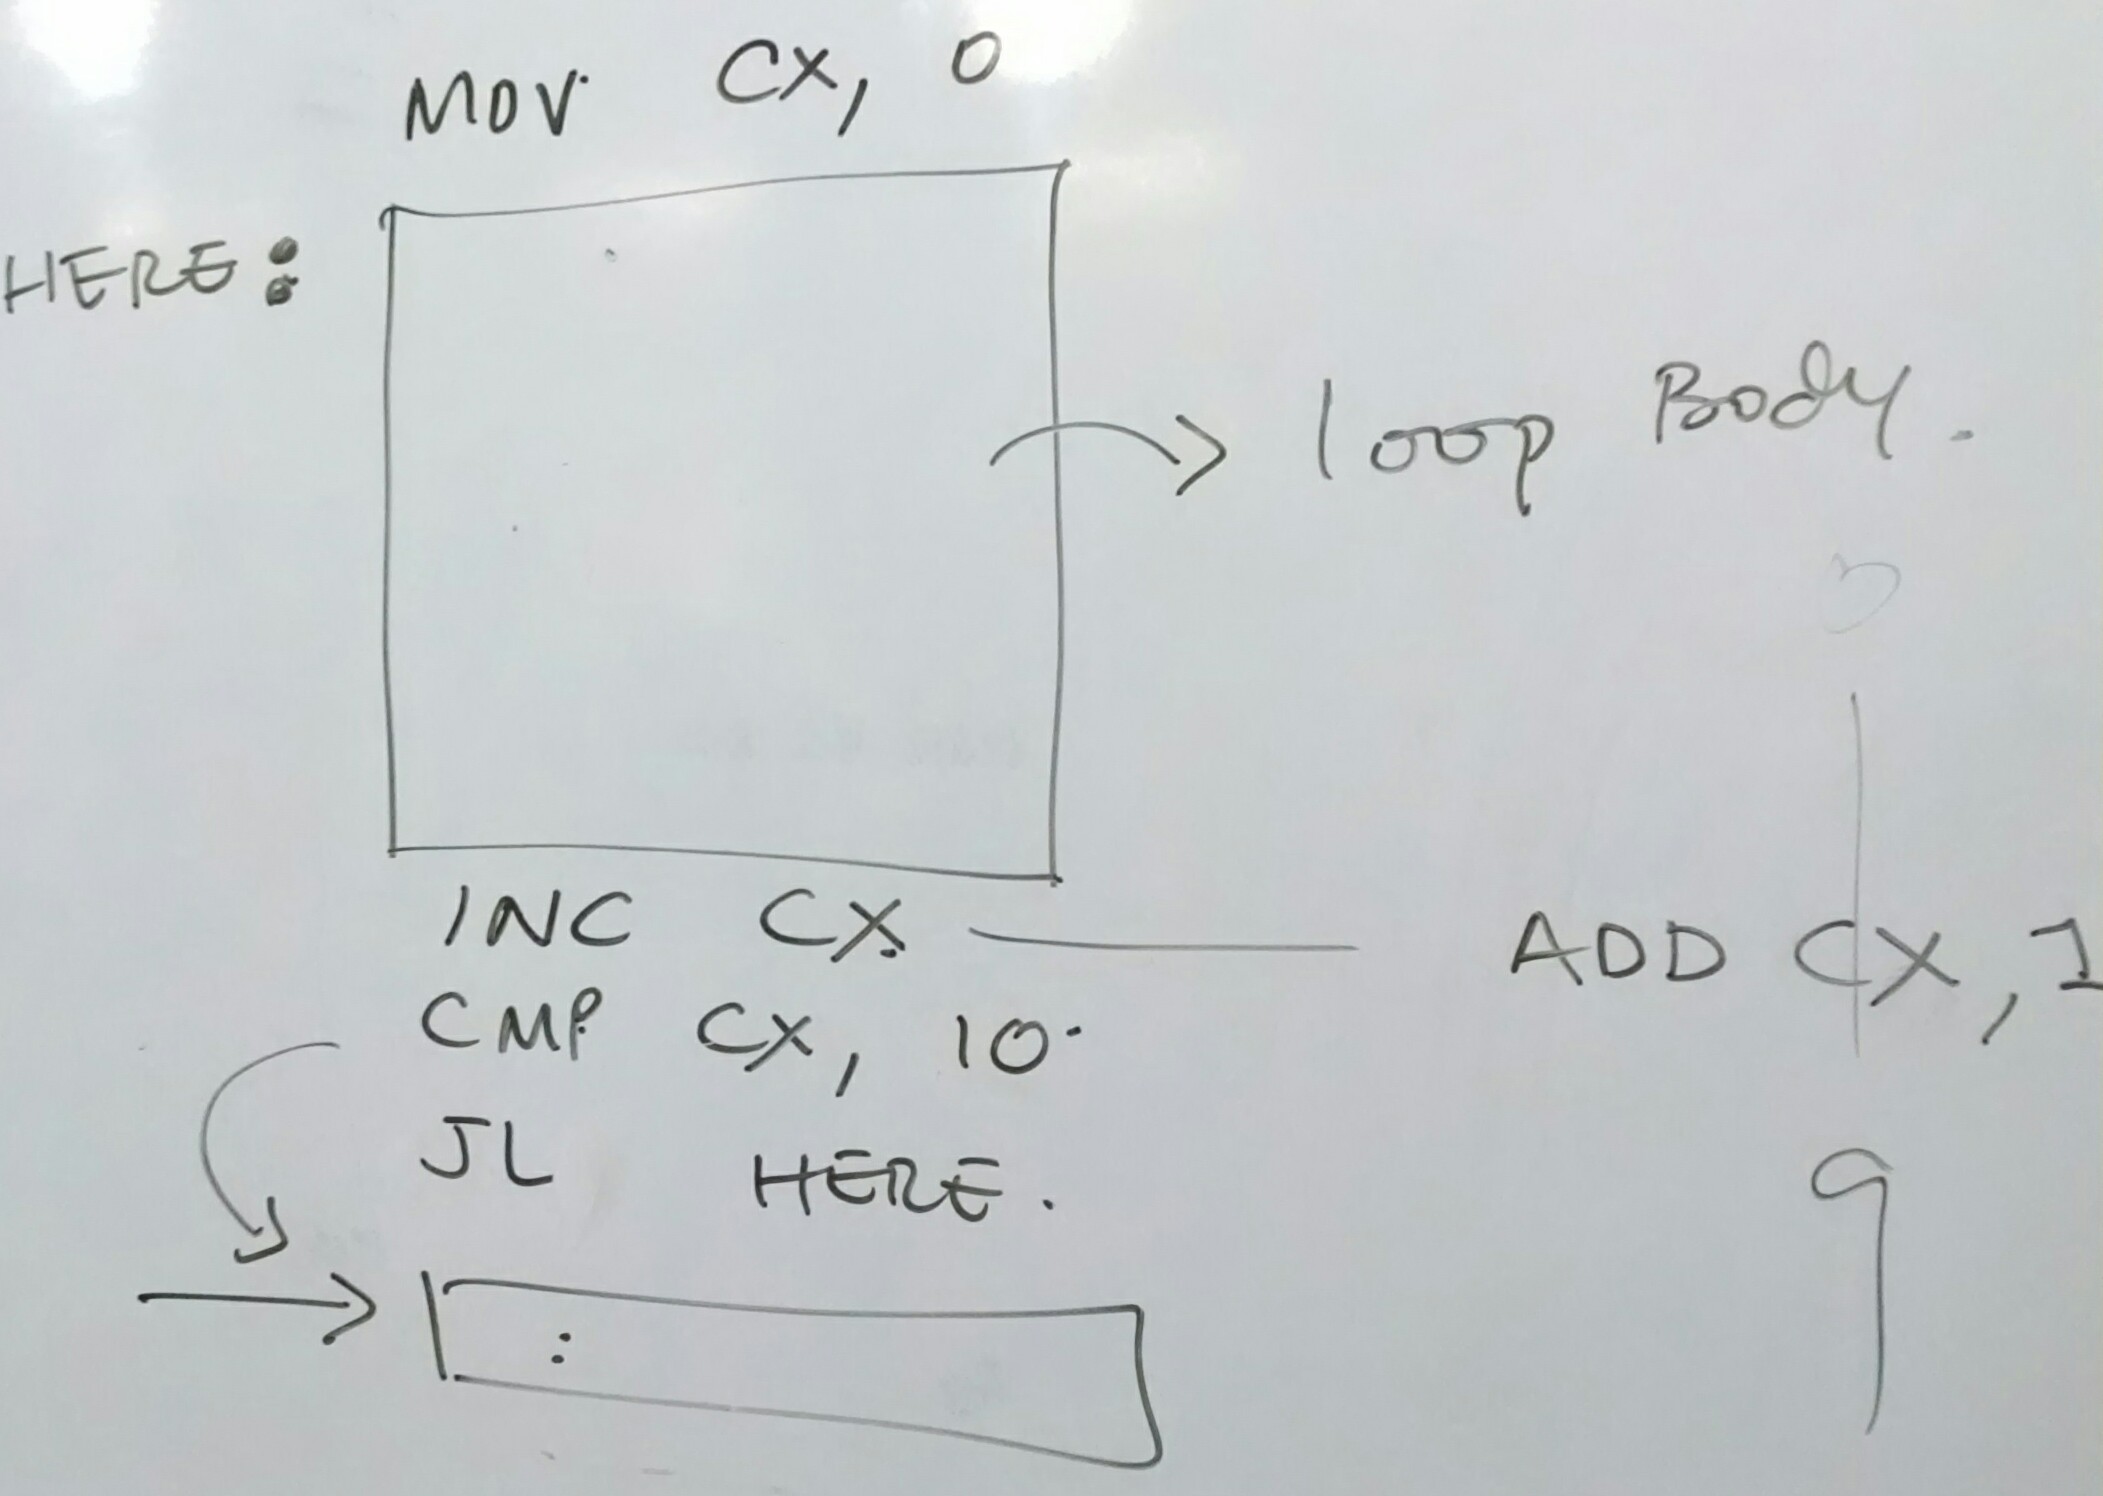 MOV CX, 0
HERE:
loop Body.
0
INC CX ADD CX, 1
CMP CX, 10.
JL HERE.
9
: